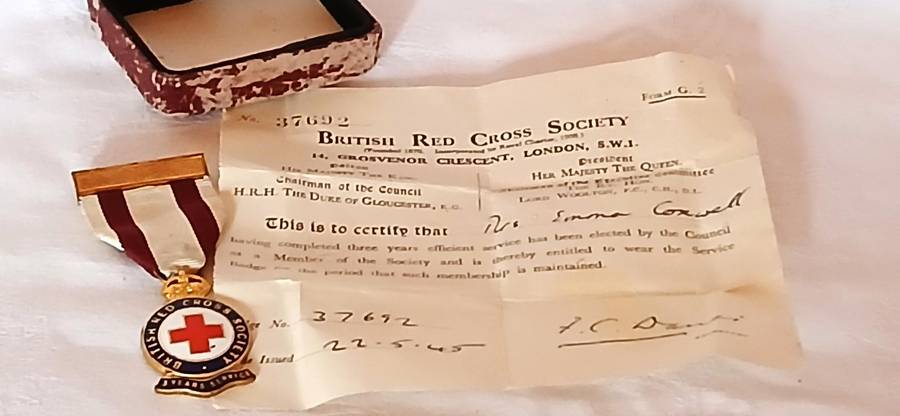 FORM G. 2
No. 37692
BRITISH RED CROSS SOCIETY
(Founded 1870. Incorporated by Royal Charter, 1908.)
14, GROSVENOR CRESCENT, LONDON, S.W.1.
Patron
HIS MAJESTY THE KING
President
HER MAJESTY THE QUEEN.
Chairman of the Council
H.R.H. THE DUKE OF GLOUCESTER, K.G.
Chairman of the Executive Committee
LORD WOOLTON, P.C., C.H., D.L.
This is to certify that Mrs. Emma
having completed three years efficient service has been elected by the Council
as a Member of the Society and is thereby entitled to wear the Service
Badge the period that such membership is maintained.
No. 37692
Issued 22.5.45
BRITISH RED CROSS SOCIETY
3 YEARS SERVICE